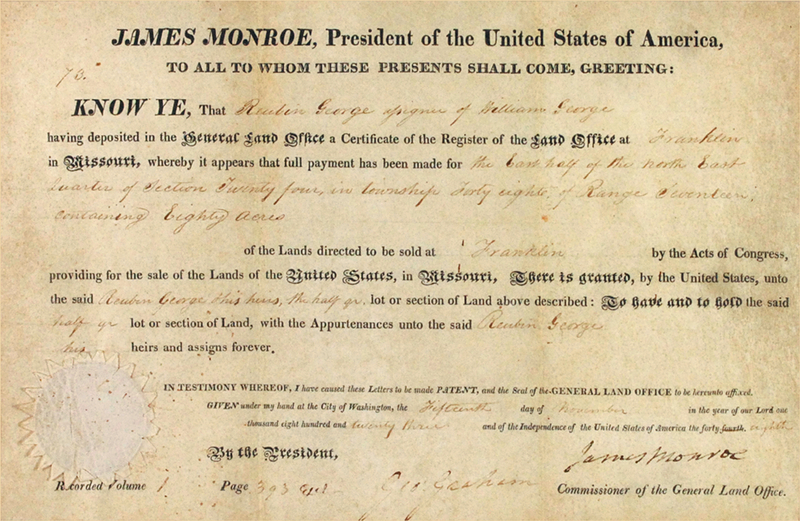 JAMES MONROE, President of the United States of America,
TO ALL TO WHOM THESE PRESENTS SHALL COME, GREETING:
73.
KNOW YE, That Reubin George assignee of William George
having deposited in the General Land Office a Certificate of the Register of the Land Office at Franklin
in Missouri, whereby it appears that full payment has been made for the East half of the north East
quarter of Section Twenty four, in township forty eight, of Range Seventeen,
containing Eighty Acres
of the Lands directed to be sold at Franklin by the Acts of Congress,
providing for the sale of the Lands of the United States, in Missouri, There is granted, by the United States, unto
the said Reubin George & his heirs, the half qr. lot or section of Land above described: To have and to hold the said
half qr lot or section of Land, with the Appurtenances unto the said Reubin George
his heirs and assigns forever.
IN TESTIMONY WHEREOF, I have caused these Letters to be made PATENT, and the Seal of the GENERAL LAND OFFICE to be hereunto affixed.
GIVEN under my hand at the City of Washington, the Fifteenth day of November in the year of our Lord one
thousand eight hundred and twenty three and of the Independence of the United States of America the forty fourth. eighth
By the President, James Monroe
Recorded Volume 1 Page 393 Geo: Graham Commissioner of the General Land Office.